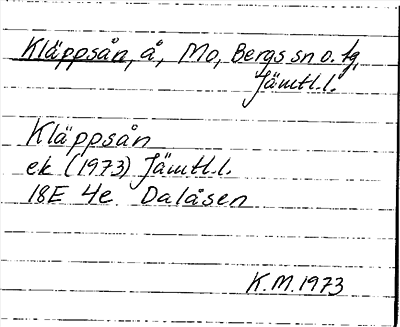 Kläppsån, å, Mo, Bergs sn o. tg,
Jämtl.l.
Kläppsån
ek (1973) Jämtl.l.
18E 4e Dalåsen
K.M.1973